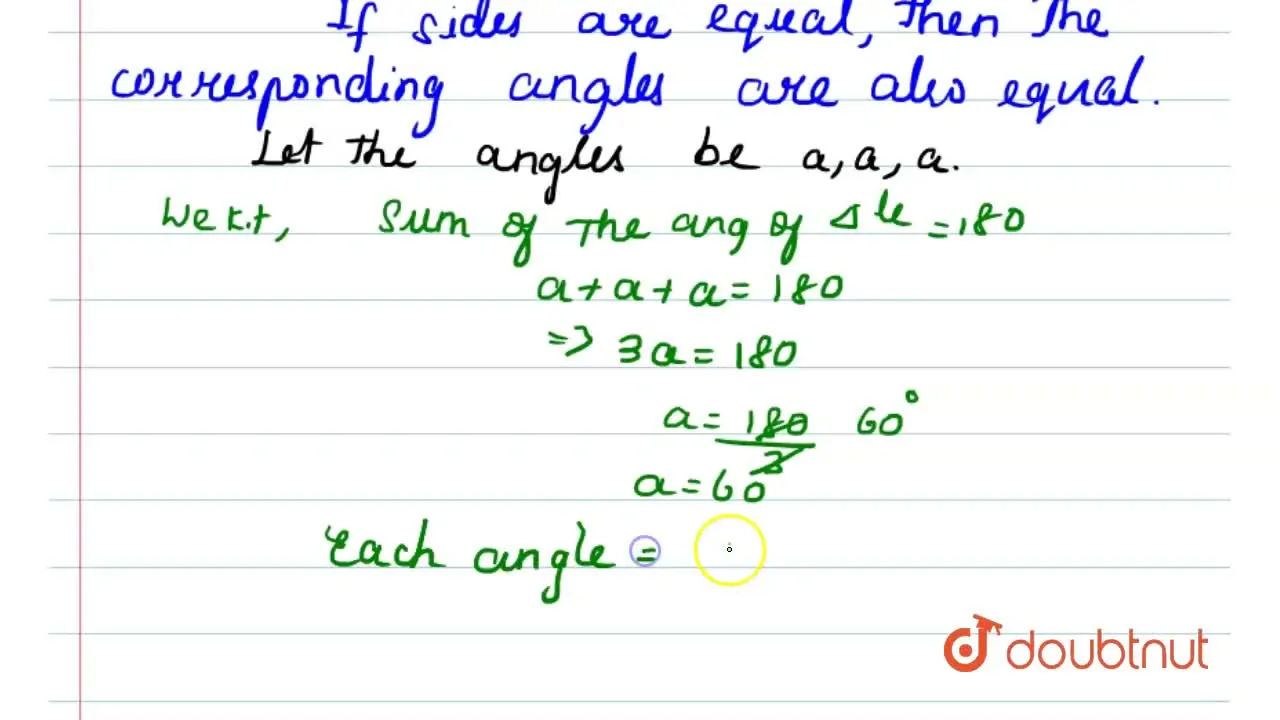 If sides are equal, then the
corresponding angles are also equal.
Let the angles be a, a, a.
We k.t, Sum of the ang of Δle = 180
a + a + a = 180
=> 3a = 180
a = 180/3 60°
a = 60
Each angle =
doubtnut